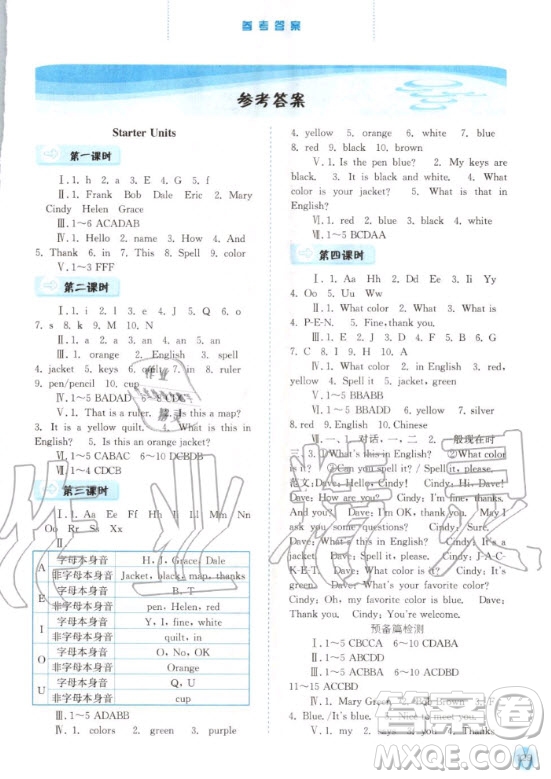 参考答案
参考答案
Starter Units
第一课时
Ⅰ.1. h 2. a 3. E 4. G 5. f
Ⅱ.1. Frank Bob Dale Eric 2. Mary
Cindy Helen Grace
Ⅲ.1~6 ACADAB
Ⅳ.1. Hello 2. name 3. How 4. And
5. Thank 6. in 7. This 8. color 9. is
Ⅴ.1~3 FFF
第二课时
Ⅰ.1. i 2. l 3. e 4. J 5. Q 6. o
7. s 8. k 9. M 10. N
Ⅱ.1. a 2. an 3. a 4. an 5. an
Ⅲ.1. orange 2. English 3. spell
4. jacket 5. keys 6. quilt 7. in 8. ruler
9. pen/pencil 10. cup
Ⅳ.1~5 BADAD 6~8 CDC
Ⅴ.1. That is a ruler. 2. Is this a map?
3. It is a yellow quilt. 4. What is this in
English? 5. Is this an orange jacket?
Ⅵ.1~5 CABAC 6~10 DCBDB
Ⅶ.1~4 CDCB
第三课时
Ⅰ.1. Aa Ee Ff Mm Nn
Oo Rr Ss Xx
A 字母本身音 H, J, Grace, Dale
非字母本身音 Jacket, black, map, thanks
E 字母本身音 B, T
非字母本身音 pen, Helen, red
I 字母本身音 Y, I, fine, white
非字母本身音 quilt, in
O 字母本身音 O, No, OK
非字母本身音 Orange
U 字母本身音 Q, U
非字母本身音 cup
Ⅲ.1~5 ADABB
Ⅳ.1. colors 2. green 3. purple
4. yellow 5. orange 6. white 7. blue
8. red 9. black 10. brown
Ⅴ.1. Is the pen blue? 2. My keys are
black. 3. It is black and white. 4. What
color is your jacket? 5. What is that in
English?
Ⅵ.1. red 2. blue 3. black 4. white
Ⅶ.1~5 BCDAA
第四课时
Ⅰ.1. Aa Hh Jj Kk
4. Oo Uu Ww
Ⅱ.1. What color 2. What is
4. P-E-N. 5. Fine, thank you.
Ⅲ.1. E 2. D 3. F 4. C 5. A
Ⅳ.1. What color 2. in English 3. red,
yellow 4. Spell it 5. jacket, green
Ⅴ.1~5 BBABB
Ⅵ.1~5 BBADD 6. yellow 7. silver
8. red 9. English 10. Chinese
Ⅶ. 一、1. 对话, 一, 二 2. 一般现在时
三、3. ①What's this in English? ②What color
is it? ③Can you spell it? / Spell it, please.
范文: Dave: Hello, Cindy! Cindy: Hello,
Dave! How are you? Dave: I'm fine, thanks.
And you? Cindy: I'm OK, thank you. May I
ask you some questions? Dave: OK. Cindy:
What's this in English? Dave: It's a
jacket. Cindy: Spell it, please. Dave: J-A-C-
K-E-T. Cindy: What color is it? Dave: It's
green. Cindy: What's your favorite color?
Cindy: Oh, my favorite color is blue. Dave:
Thank you. Cindy: You're welcome.
预备篇检测
Ⅰ.1~5 CBCCA 6~10 CDABA
Ⅱ.1~5 ABCDD
Ⅲ.1~5 ACBBA 6~10
11~15 ACCBD
Ⅳ.1. Mary Green
4. Blue./It's blue. 5. Nice to meet you.
Ⅴ.1. my 2. says 3. in 4. your